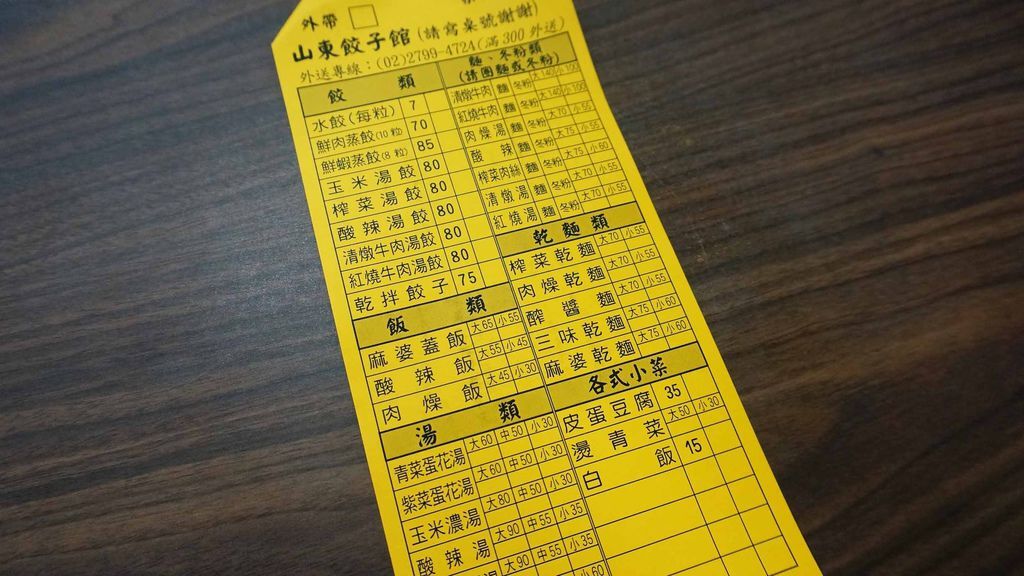 外帶
山東餃子館(請寫桌號謝謝)
外送專線：(02)2799-4724(滿300外送)
餃類
水餃(每粒) 7
鮮肉蒸餃(10粒) 70
鮮蝦蒸餃(8粒) 85
玉米湯餃 80
榨菜湯餃 80
酸辣湯餃 80
清燉牛肉湯餃 80
紅燒牛肉湯餃 80
乾拌餃子 75
飯類
麻婆蓋飯 大65 小55
酸辣飯 大55 小45
肉燥飯 大45 小30
湯類
青菜蛋花湯 大60 中50 小30
紫菜蛋花湯 大60 中50 小30
玉米濃湯 大80 中50 小30
酸辣湯 大90 中55 小35
湯 大90 中55 小35
小60
麵、冬粉類
(請圈麵或冬粉)
清燉牛肉 麵 冬粉 大140
紅燒牛肉 麵 冬粉 大140 小100
肉燥湯 麵 冬粉 大70 小55
酸辣 麵 冬粉 大75 小55
榨菜肉絲 麵 冬粉 大75 小60
清燉湯 麵 冬粉 大70 小55
紅燒湯 麵 冬粉 大70 小55
乾麵類
榨菜乾麵 大70 小55
肉燥乾麵 大70 小55
醡醬麵 大70 小55
三味乾麵 大75 小60
麻婆乾麵 大75 小60
各式小菜
皮蛋豆腐 35
燙青菜 大50 小30
白飯 15